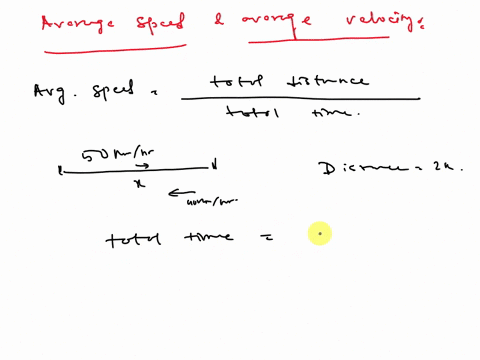 Average speed & average velocity:
Avg. speed = total distance
total time.
50 km/hr
x
Distance = 2x.
40 km/hr.
total time =